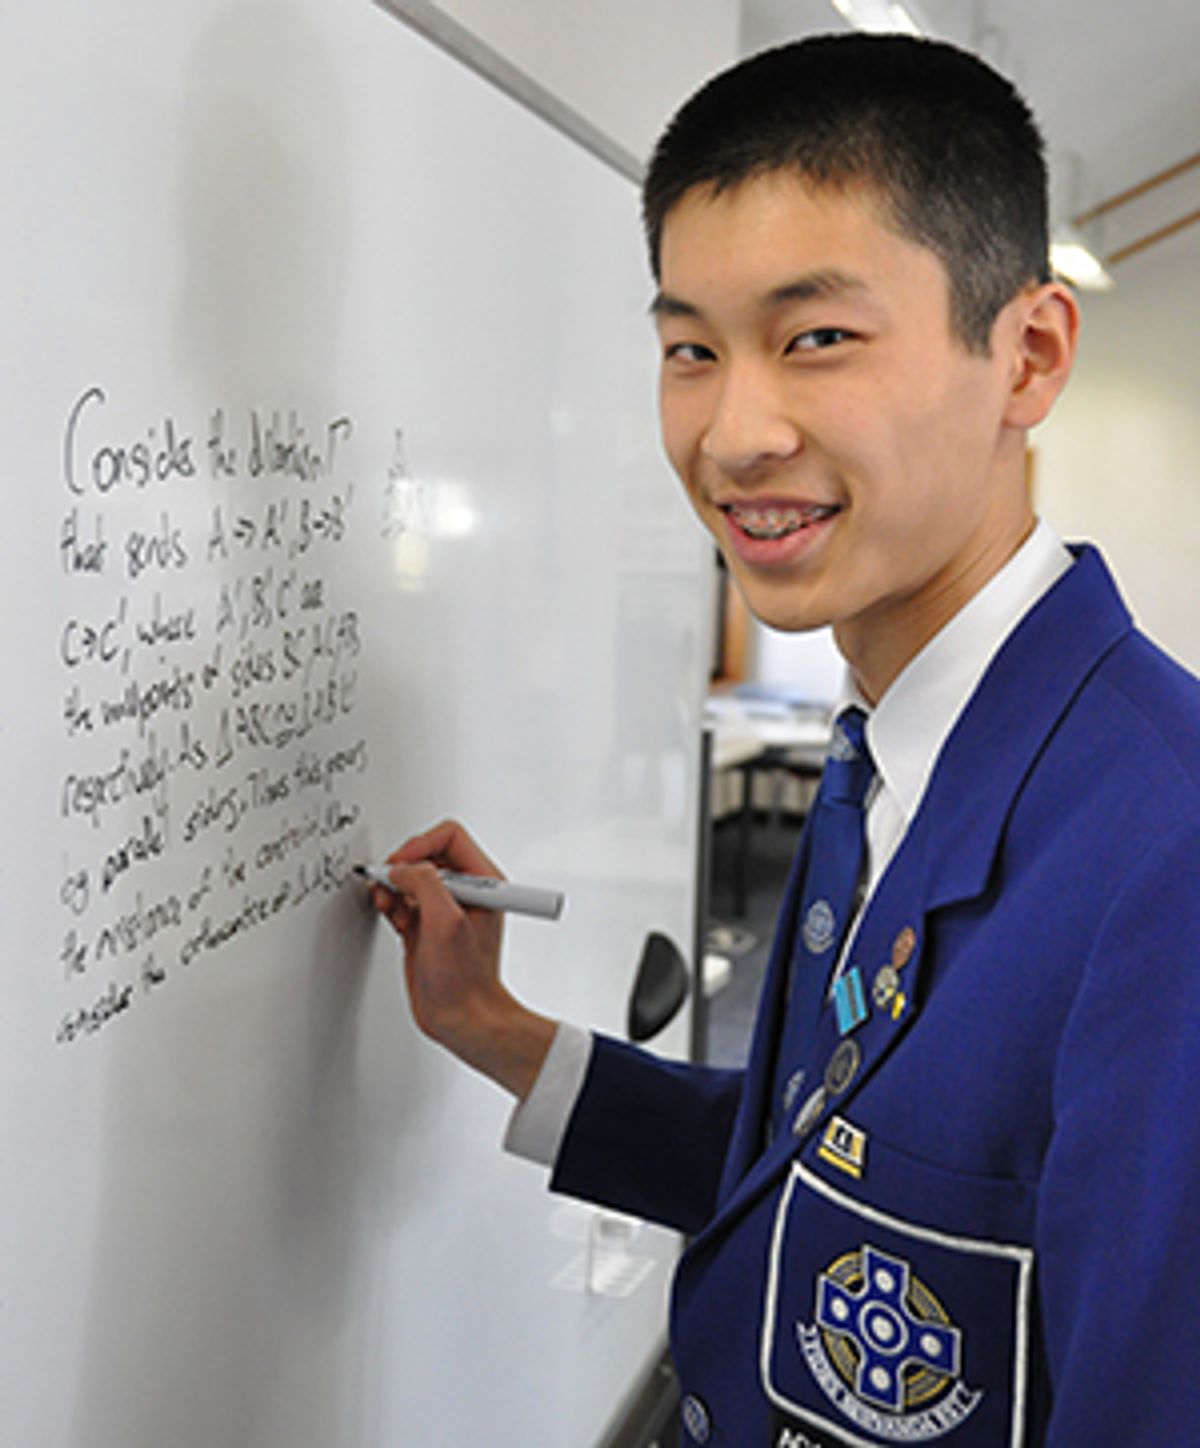 Consider the dilation Γ
that sends A → A', B → B'
C → C', where A', B', C' are
the midpoints of sides BC, AC, AB
respectively. As ΔABC ∼ ΔA'B'C'
by parallel sides. Thus this proves
the existence of the centroid. Now
consider the orthocentre of ΔA'B'C'